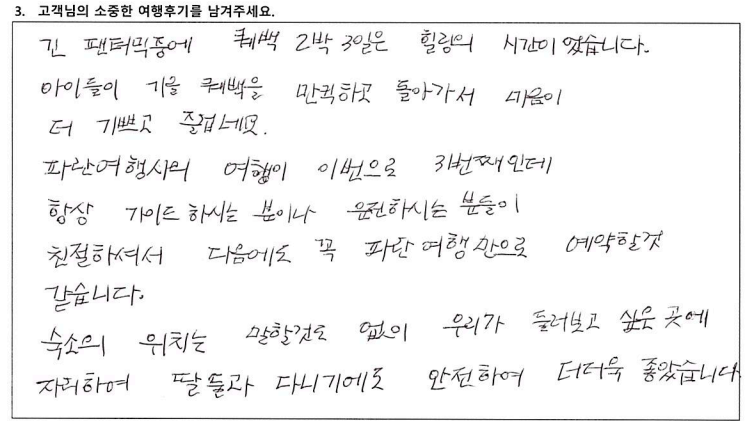 3. 고객님의 소중한 여행후기를 남겨주세요.
긴 팬더믹중에 퀘백 2박 3일은 힐링의 시간이였습니다.
아이들이 가을 퀘백을 만끽하고 돌아가서 마음이
더 기쁘고 즐겁네요.
파란여행사의 여행이 이번으로 3번째인데
항상 가이드 하시는 분이나 운전하시는 분들이
친절하셔서 다음에도 꼭 파란여행만으로 예약할것
같습니다.
숙소의 위치는 말할것도 없이 우리가 둘러보고 싶은 곳에
자리하여 딸들과 다니기에도 안전하여 더더욱 좋았습니다.